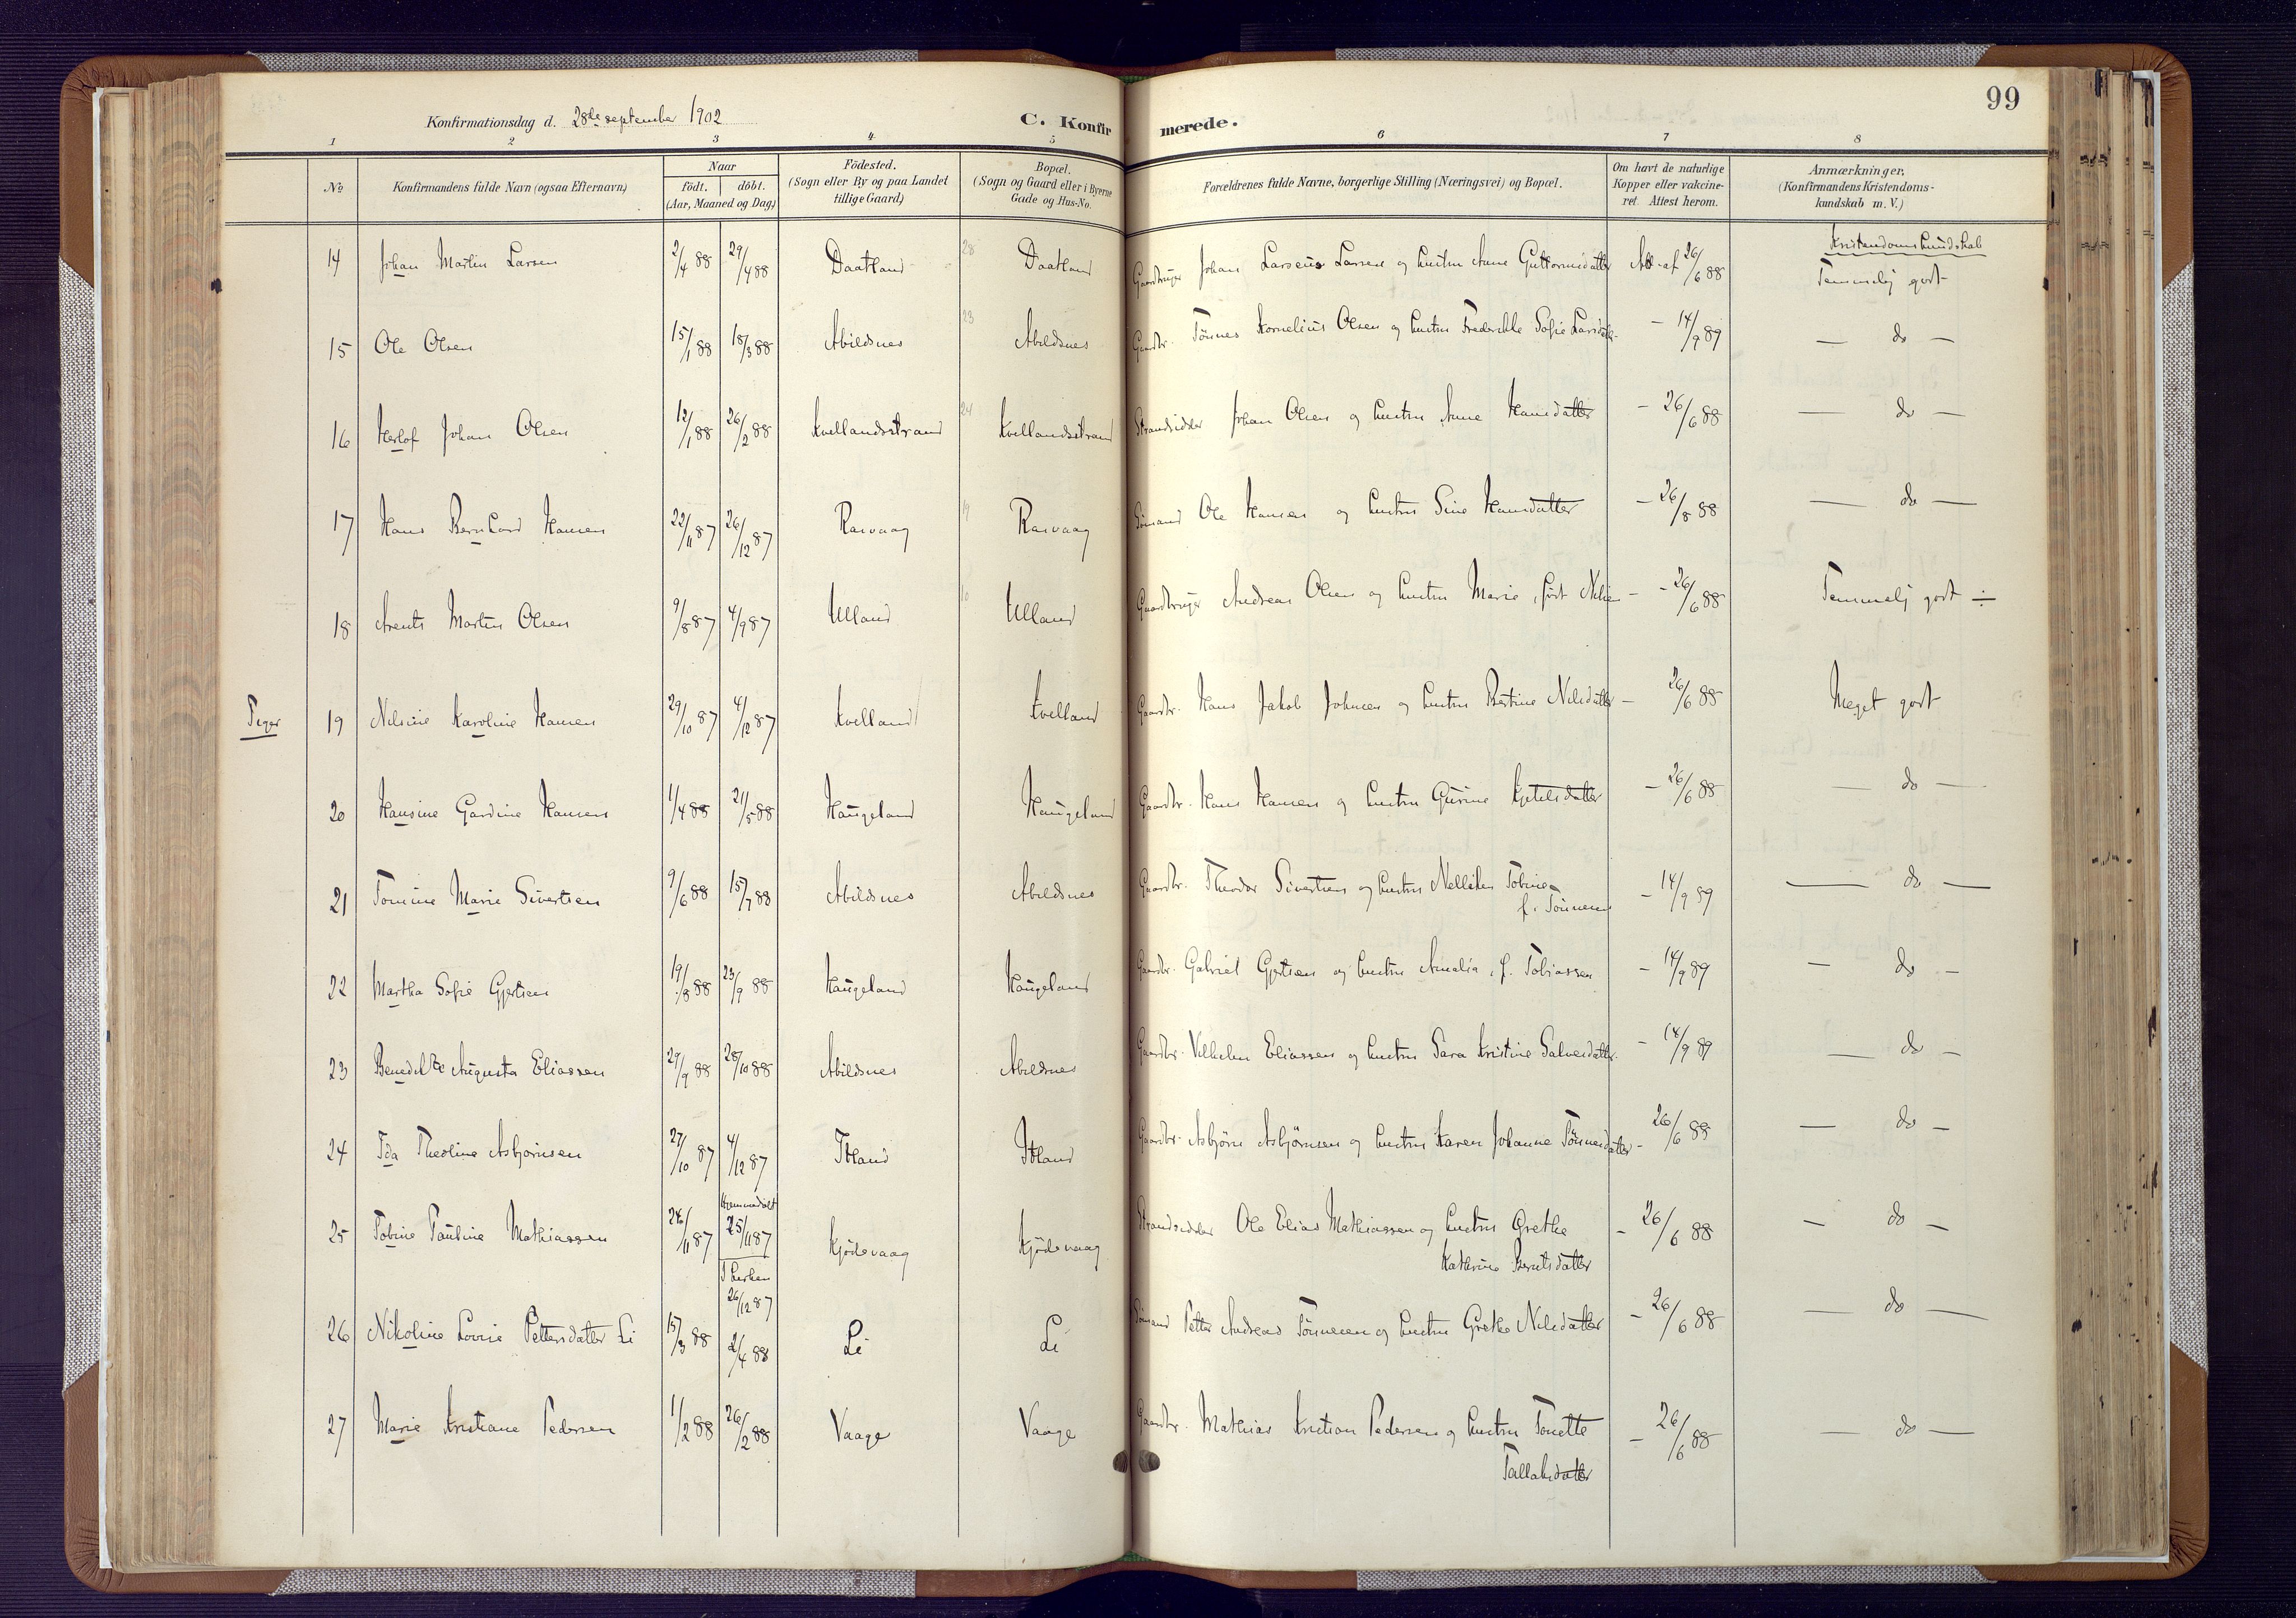 99
Konfirmationsdag d. 28de september 1902
C. Konfirmerede.
1 2 3 4 5 6 7 8
No.
Konfirmandens fulde Navn (ogsaa Efternavn)
Naar
födt. döbt.
(Aar, Maaned og Dag)
Födested.
(Sogn eller By og paa Landet
tillige Gaard)
Bopæl.
(Sogn og Gaard eller i Byerne
Gade og Hus-No.
Forældrenes fulde Navne, borgerlige Stilling (Næringsvei) og Bopæl.
Om havt de naturlige
Kopper eller vakcine-
ret. Attest herom.
Anmærkninger,
(Konfirmandens Kristendoms-
kundskab m. V.)
Kristendomskundskab
14 Johan Martin Larsen 2/4 88 29/4 88 Daatland 28 Daatland Gaardbruger Johan Larseus Larsen og hustru Anne Guttormsdatter Att. af 26/6 88 Temmelig godt
15 Ole Olsen 15/1 88 18/3 88 Abildsnes 23 Abildsnes Gaardbr. Tønnes Kornelius Olsen og hustru Fredrikke Sofie Larsdatr. - 14/9 89 — do —
16 Herlof Johan Olsen 12/1 88 26/2 88 Kvellandsstrand 24 Kvellandsstrand Strandsidder Johan Olsen og hustru Anne Hansdatter - 26/6 88 — do —
17 Hans Bernhard Hansen 22/11 87 26/12 87 Rasvaag 19 Rasvaag Sømand Ole Hansen og hustru Sine Hansdatter - 26/8 88 — do —
18 Arents Martin Olsen 9/8 87 4/9 87 Ulland Ulland Gaardbruger Andreas Olsen og hustru Marie, født Nilsen - 26/6 88 Temmelig godt ÷
Piger
19 Nilsine Karoline Hansen 29/10 87 4/12 87 Kvelland Kvelland Gaardbr. Hans Jakob Johnsen og hustru Bertine Nilsdatter - 26/6 88 Meget godt
20 Hansine Gardine Hansen 1/4 88 21/5 88 Haugeland Haugeland Gaardbr. Hans Hansen og hustru Gurine Kjetelsdatter - 26/6 88 — do —
21 Tomine Marie Sivertsen 9/6 88 15/7 88 Abildsnes Abildsnes Gaardbr. Theodor Sivertsen og hustru Nelliken Tobine
f. Tønnesen - 14/9 89 — do —
22 Martha Sofie Gjertsen 19/8 88 23/9 88 Haugeland Haugeland Gaardbr. Gabriel Gjertsen og hustru Amalia, f. Tobiassen - 14/9 89 — do —
23 Benedikte Augusta Eliassen 29/9 88 28/10 88 Abildsnes Abildsnes Gaardbr. Vilhelm Eliassen og hustru Sara Kristine Salvesdatter - 14/9 89 — do —
24 Ida Theoline Asbjørnsen 27/10 87 4/12 87 Itland Itland Gaardbr. Asbjørn Asbjørnsen og hustru Karen Johanne Tønnesdatter - 26/6 88 — do —
25 Tobine Pauline Mathiassen 24/11 87 Hjemmedøbt
25/11 87
I kirken
26/12 87 Kjødsvaag Kjødsvaag Strandsidder Ole Elias Mathiassen og hustru Grethe
Kathrine Berntsdatter - 26/6 88 — do —
26 Nikoline Lovise Pettersdatter Li 15/3 88 2/4 88 Li Li Sømand Petter Andreas Tønnesen og hustru Grethe Nilsdatter - 26/6 88 — do —
27 Marie Kristiane Pedersen 1/2 88 26/2 88 Vaage Vaage Gaardbr. Mathias Kristian Pedersen og hustru Tonette
Tallaksdatter - 26/6 88 — do —